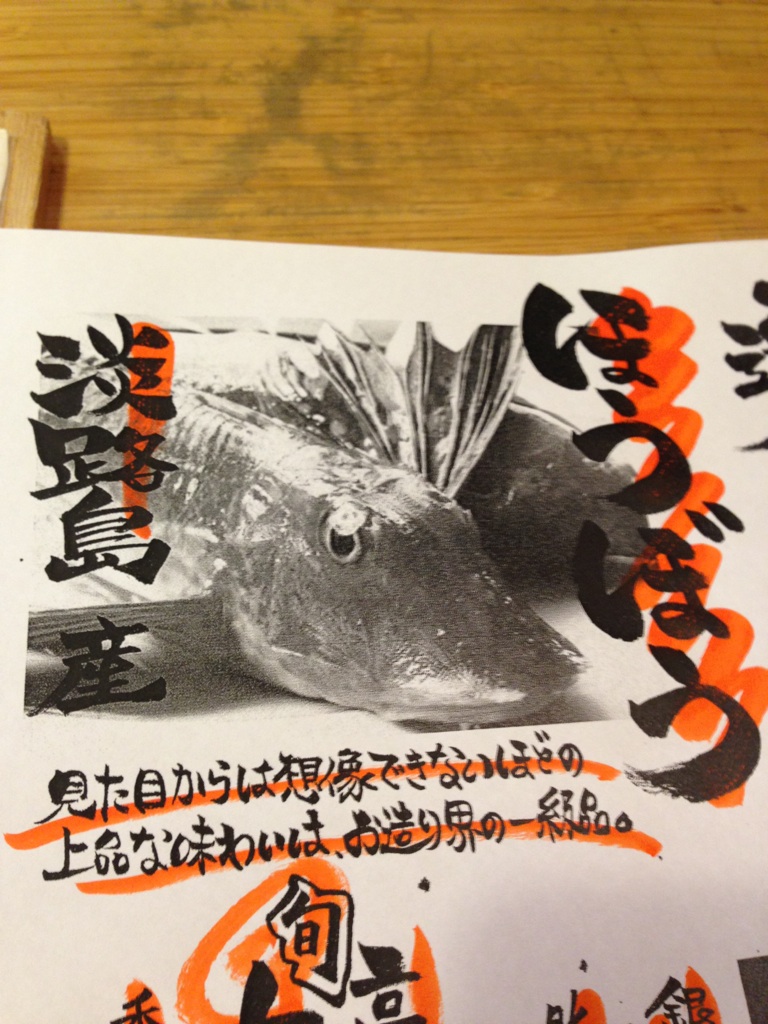 ほうぼう
淡路島産
見た目からは想像できないほどの
上品な味わいは、お造り界の一級品。
旬
銀